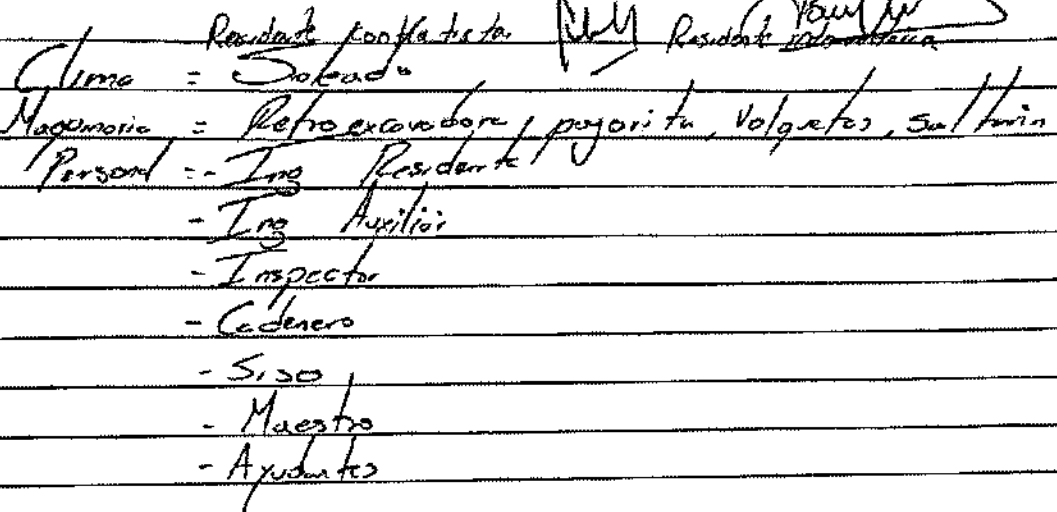 Residente contratista Residente interventoria
Clima = Soleado
Maquinaria = Retroexcavadora, pajarita, Volquetas, saltarin
Personal = - Ing Residente
- Ing Auxiliar
- Inspector
- Cadenero
- Siso
- Maestro
- Ayudantes